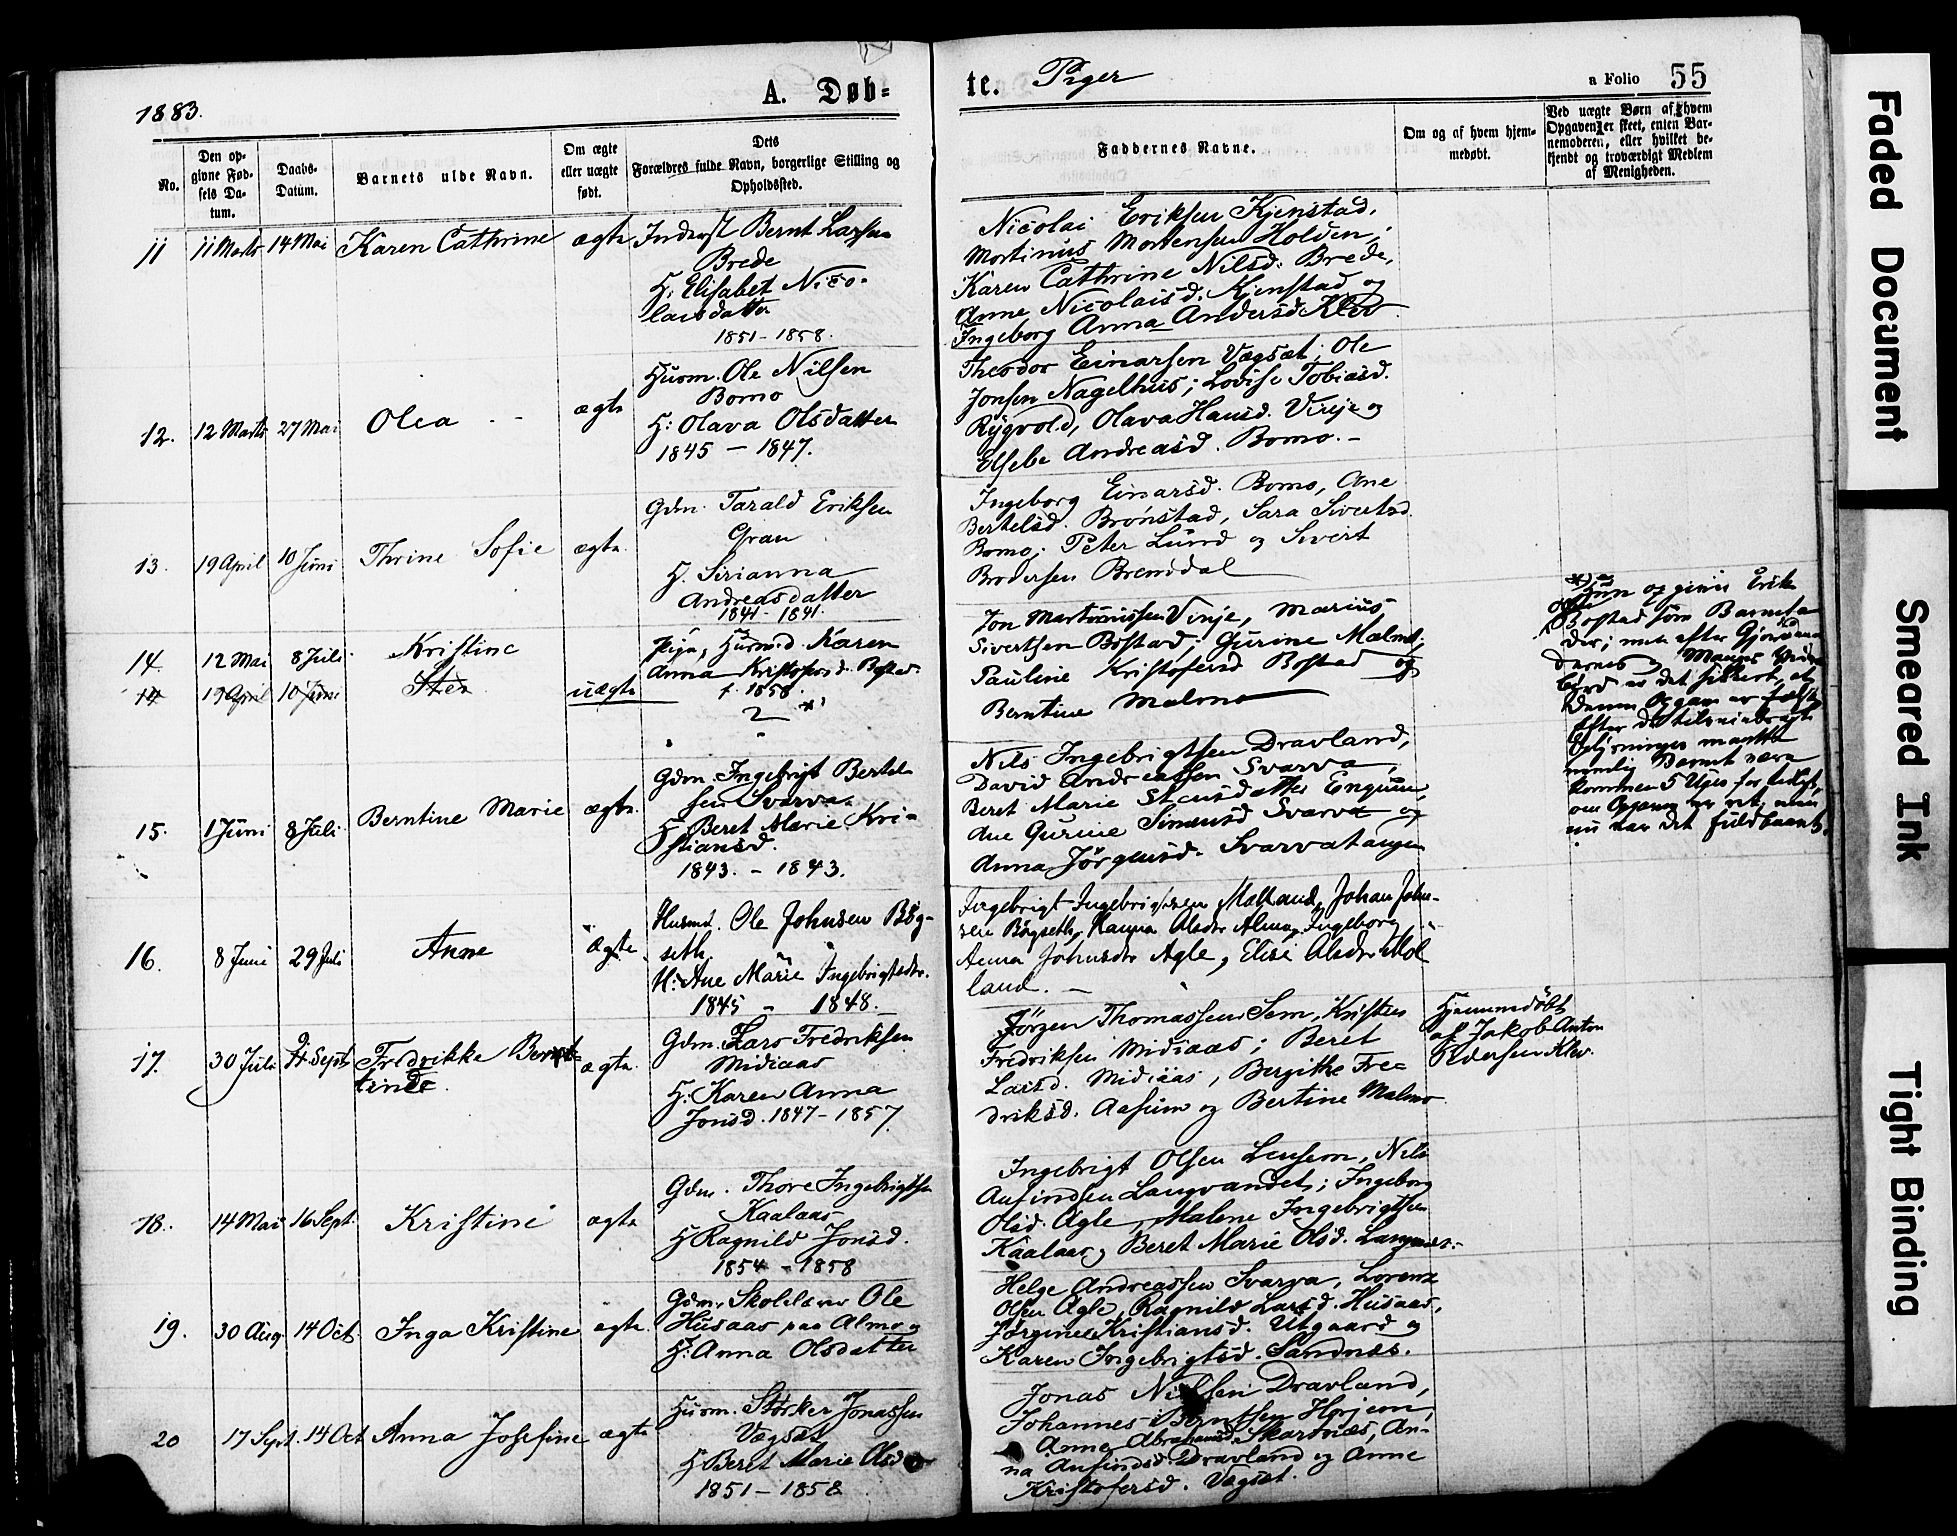 1883.
A. Døb=
te. Piger
a Folio 55
No.
Den op-
givne Fød-
sels Da-
tum.
Daabs-
Datum.
Barnets ulde Navn.
Om ægte
eller uægte
født.
Dets
Forældres fulde Navn, borgerlige Stilling og
Opholdssted.
Faddernes Navne.
Om og af hvem hjem-
medøbt.
Ved uægte Børn af hvem
Opgaven er skeet, enten Bar-
nemoderen, eller hvilket be-
kjendt og troværdigt Medlem
af Menigheden.
11 11 Marts 14 Mai Karen Cathrine ægte
Inderst Bernt Larsen
Brede
H: Elisabet Nico-
laisdatter
1851 - 1858.
Nicolai Eriksen Kjenstad,
Mortinus Mortensen Holden;
Karen Cathrine Nilsd. Brede,
Anne Nicolaisd. Kjenstad og
Ingeborg Anna Andersd. Klev.
12. 12 Marts 27 Mai Olea - ægte
Husm. Ole Nilsen
Bomo
H: Olava Olsdatter
1845 - 1847.
Theodor Einarsen Vægsæt; Ole
Jonsen Nagelhus; Lovise Tobiasd.
Rygvold, Olava Hansd. Vinje og
Elsebe Andreasd. Bomo. -
13. 19 April 10 Juni Thrine Sofie ægte
Gdm. Tarald Eriksen
Gran
H. Sirianna
Andreasdatter
1841 - 1841.
Ingeborg Einarsd. Bomo, Ane
Bertelsd. Brønstad, Sara Sivertsd.
Bomo; Peter Lund og Sivert
Brodersen Brenddal
14. 12 Mai 8 Juli Kristine
14 19 April 10 Juni
uægte
Pige, Husmd. Karen
Anna Kristofersd. Bostad.
f. 1858.
2 *)
Jon Martinussen Vinje, Marius
Sivertsen Bostad; Gurine Malmo;
Pauline Kristofersd Bostad og
Berntine Malmo
*) Hun opgiver Erik
Bostad som Barnefa
der; men efter
er det sikkert, at
denne Opgave er falsk
Efter de tilveiebragte
Oplysninger maatte
nemlig Barnet være
kommen 5 Uger for tidligt,
om Opgaven var ret, men
nu var det fuldbaaret.
15. 1 Juni 8 Juli Berntine Marie ægte
Gdm. Ingebrigt Bertel
sen Svarva
H Beret Marie Kri-
stiansd.
1843. - 1843.
Nils Ingebrigtsen Dravland,
David Andreassen Svarva,
Beret Marie Stensdatter Engum,
Ane Gurine Simensd Svarva og
Anna Jørgensd. Svarvatangen
16. 8 Juni 29 Juli Anne Ægte
Husmd. Ole Johnsen Bøg-
seth.
H: Ane Marie Ingebrigtsdtr.
1845 - 1848.
Ingebrigt Ingebrigtsen Molland, Johan John-
sen Bøgseth, Hanna Olsdtr Almo, Ingeborg
Anna Johnsdtr Agle, Elise Olsdtr Mol
land. -
17. 30 Juli Sept. Fredrikke Bernt-
tine
ægte
Gdm. Lars Fredriksen
Midiaas
H: Karen Anna
Jonsd. 1847 - 1857
Jørgen Thomassen Sem, Kristen
Fredriksen Midiaas; Beret
Larsd. Midiaas, Bergithe Fre-
driksd. Aasum og Bertine Malmo
Hjemmedøbt
af Jakob Anton
Pedersen Klev.
18. 14 Mai 16 Sept. Kristine ægte
Gdm. Thore Ingebrigtsen
Kaalaas
H Ragnild Jonsd.
1854 - 1858
Ingebrigt Olsen Lensem, Nils
Anfindsen Langvandet; Ingeborg
Olsd. Agle, Malene Ingebrigtsen
Kaalaas, Beret Marie Olsd.
19. 30 Aug 14 Oct. Inga Kristine ægte.
Gdm. Skolelærer Ole
Husaas paa Almo og
H: Anna Olsdatter
Helge Andreassen Svarva, Lorents
Olsen Agle, Ragnild Larsd. Husaas,
Jørgine Kristiansd. Utgaard og
Karen Ingebrigtsd. Sandnæs.
20 17 Sept. 14 Oct Anna Josefine ægte
Husm. Størker Jonassen
Vægsæt
H Beret Marie Olsd
1851 - 1858
Jonas Nilsen Dravland,
Johannes Berntsen Hojem,
Anne Abrahamsd. Skardnæs, An-
na Anfindsd. Dravland og Anne
Kristofersd. Vægsæt.
Faded Document
Smeared Ink
Tight Binding